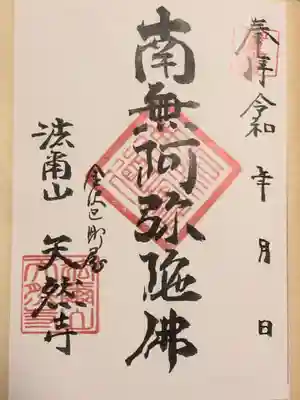 奉拝 令和 年 月 日
南無阿弥陀佛
金沢区町屋
法爾山 天然寺